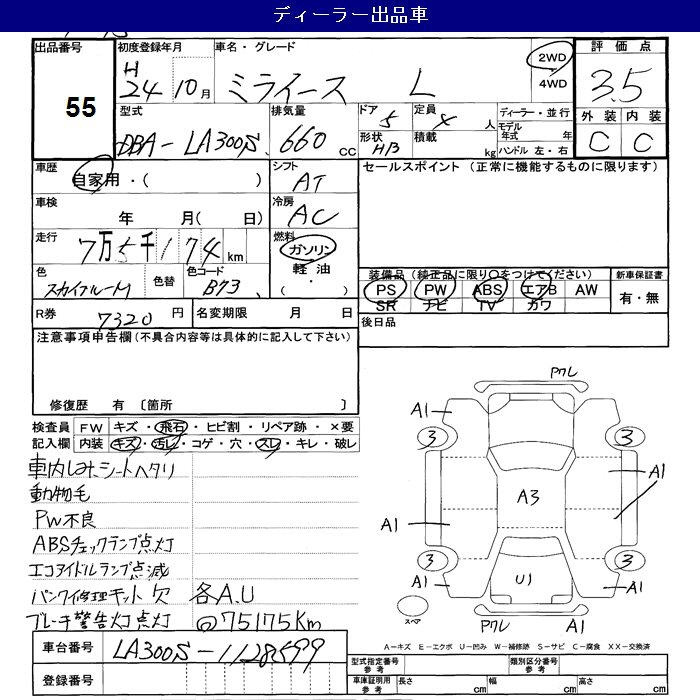 ディーラー出品車
出品番号 初度登録年月 車名・グレード 2WD 4WD 評価点
55 H24 10月 ミライース L 3.5
型式 排気量 ドア 5 定員 4 人 ディーラー・並行 外装 内装
DBA-LA300S 660 CC 形状 H/B 積載 kg モデル年式 年 C C
ハンドル 左・右
車歴 自家用・( ) シフト AT セールスポイント (正常に機能するものに限ります)
車検 年 月( 日) 冷房 AC
走行 7万5千174km 燃料 ガソリン 軽油 ・( )
色 スカイブルーM 色替 色コード B73 装備品(純正品に限り○をつけてください) 新車保証書
PS PW ABS エアB AW 有・無
SR ナビ TV カワ
R券 7320 円 名変期限 月 日 後日品
注意事項申告欄(不具合内容等は具体的に記入して下さい)
修復歴 有 〔箇所 〕
検査員 FW キズ・飛石・ヒビ割・リペア跡・×要
記入欄 内装 キズ・汚レ・コゲ・穴・スレ・キレ・破レ
車内しみ、シートヘタリ
動物毛
PW不良
ABSチェックランプ点灯
エコアイドルランプ点滅
パンク修理キット欠 各A.U
ブレーキ警告灯点灯 @75175Km
車台番号 LA300S-1128599
登録番号
PクレA1
A1
3 3
A1
A3
A1
3 3
A1 U1 A1
スペア
Pクレ A1
A-キズ E-エクボ U-凹み W-補修跡 S-サビ C-腐食 XX-交換済
型式指定番号 参考 類別区分番号 参考
車庫証明用 参考 長さ cm 幅 cm 高さ cm